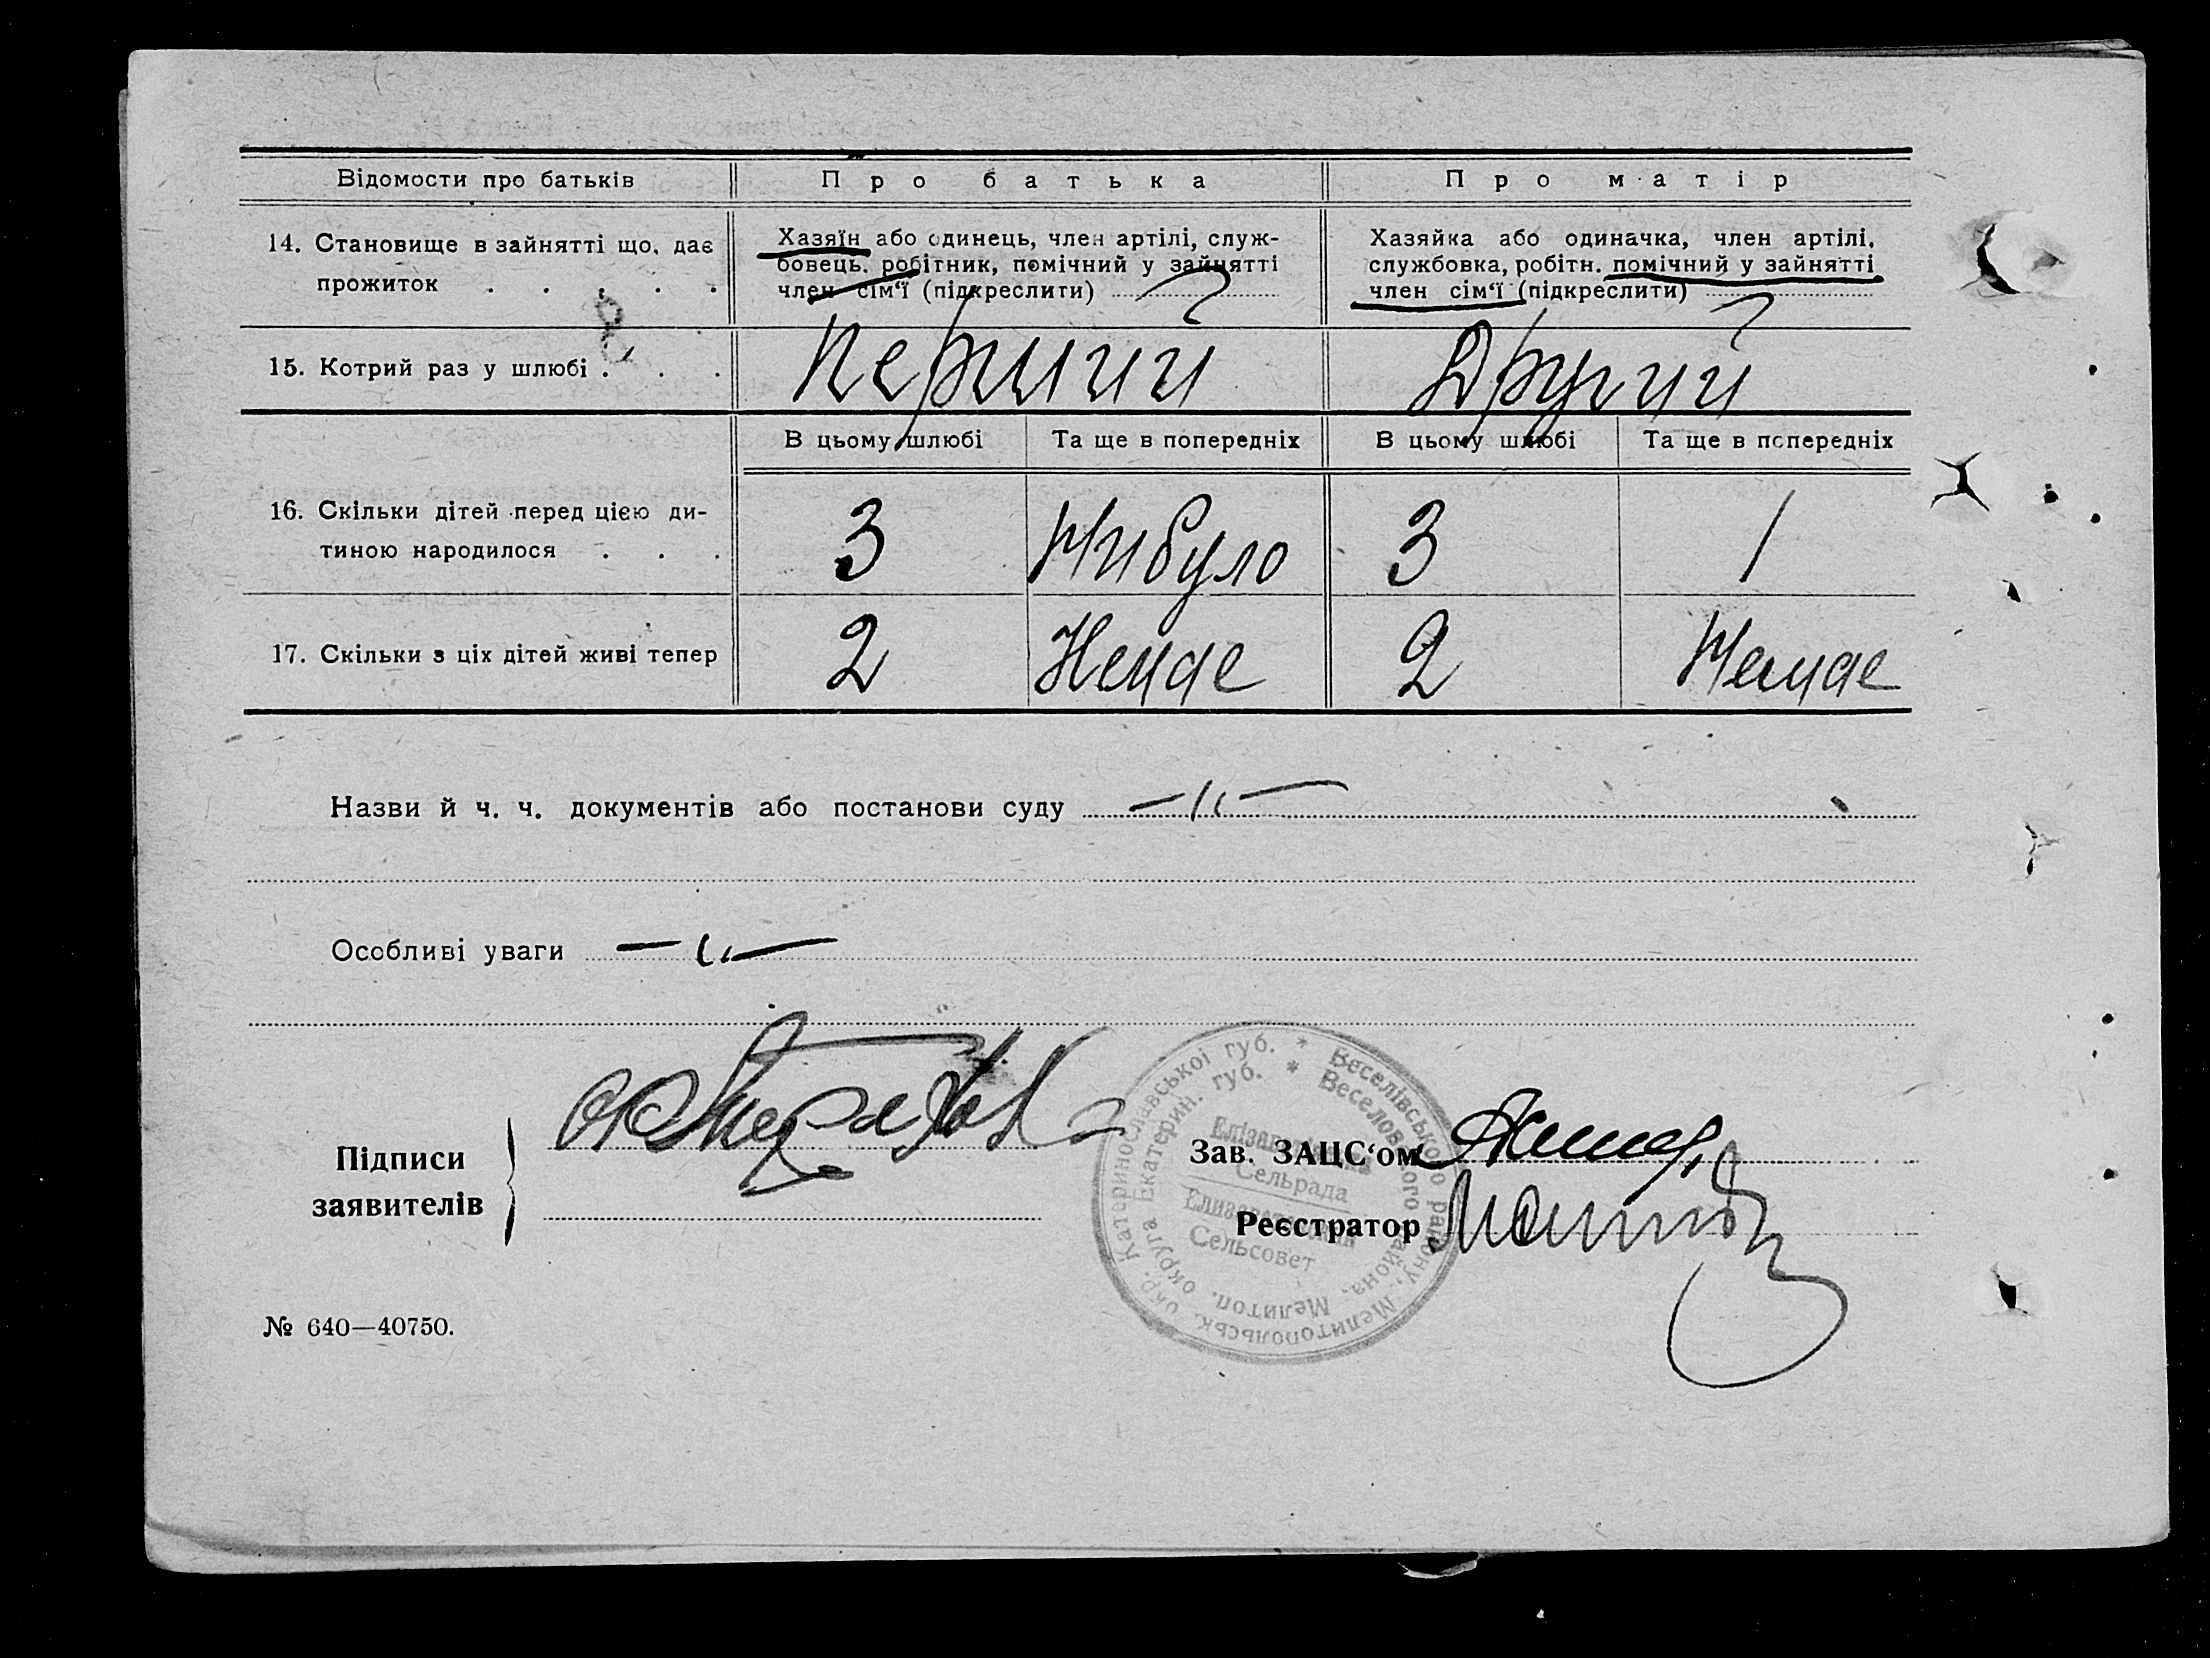 Відомости про батьків
Про батька
Про матір
14. Становище в зайнятті що, дає
прожиток . . . . .
Хазяїн або одинець, член артілі, служ-
бовець, робітник, помічний у зайнятті
член сім‘ї (підкреслити)
Хазяйка або одиначка, член артілі,
службовка, робітн. помічний у зайнятті
член сім‘ї (підкреслити)
15. Котрий раз у шлюбі . . .
Перший
Другий
В цьому шлюбі
Та ще в попередніх
В цьому шлюбі
Та ще в попередніх
16. Скільки дітей перед цією ди-
тиною народилося . . .
3
Нибуло
3
1
17. Скільки з ціх дітей живі тепер
2
Немае
2
Немае
Назви й ч. ч. документів або постанови суду —〃—
Особливі уваги —〃—
Підписи
заявителів
Зав. ЗАЦС‘ом
Реєстратор
Веселівського району, Мелитопольськ. окр. Катеринославської губ. *
Веселовского района, Мелитоп. округа Екатерин. губ. *
Сельрада
Сельсовет
№ 640—40750.